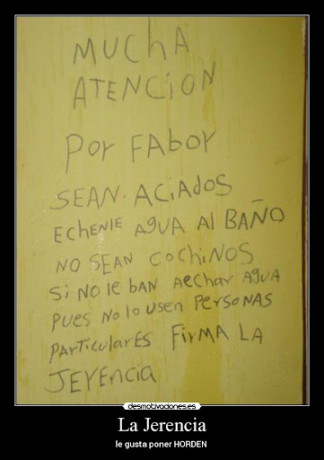 MUChA
ATENCION
Por FABOr
SEAN ACiADOS
EchENlE AgUA Al BAÑO
NO SEAN COChINOS
Si NO lE bAN AEChAr AgUA
PUES NO lO USEN PErSONAS
PArTiCUlArES FirMA LA
JErENCiA
desmotivaciones.es
La Jerencia
le gusta poner HORDEN